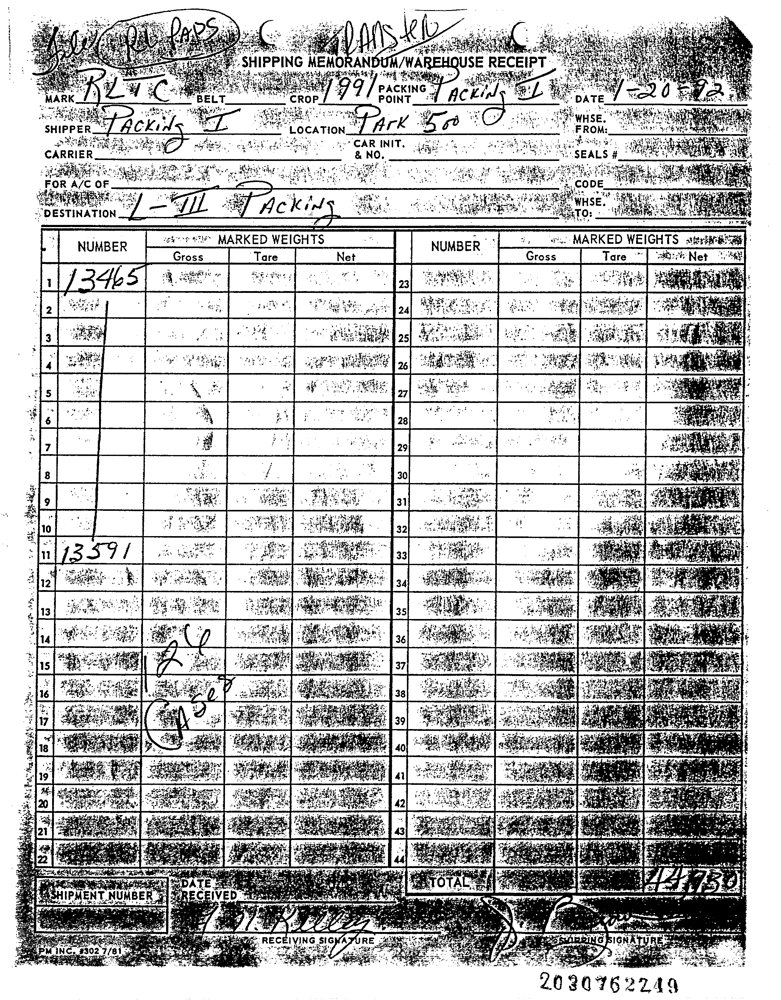 TRANSFER
SHIPPING MEMORANDUM/WAREHOUSE RECEIPT
MARK RL1C BELT CROP 1991 PACKING POINT PACKING I DATE 1-20-92
SHIPPER PACKING I LOCATION PARK 500 WHSE. FROM:
CARRIER CAR INIT. & NO. SEALS #
FOR A/C OF CODE
DESTINATION L-III PACKING WHSE. TO:
NUMBER MARKED WEIGHTS NUMBER MARKED WEIGHTS
Gross Tare Net Gross Tare Net
1 13465 23
2 24
3 25
4 26
5 27
6 28
7 29
8 30
9 31
10 32
11 13591 33
12 34
13 35
14 36
15 126 37
16 CASES 38
17 39
18 40
19 41
20 42
21 43
22 44
SHIPMENT NUMBER DATE RECEIVED TOTAL 44,950
RECEIVING SIGNATURE SHIPPING SIGNATURE
PM INC. #302 7/81
2030762249